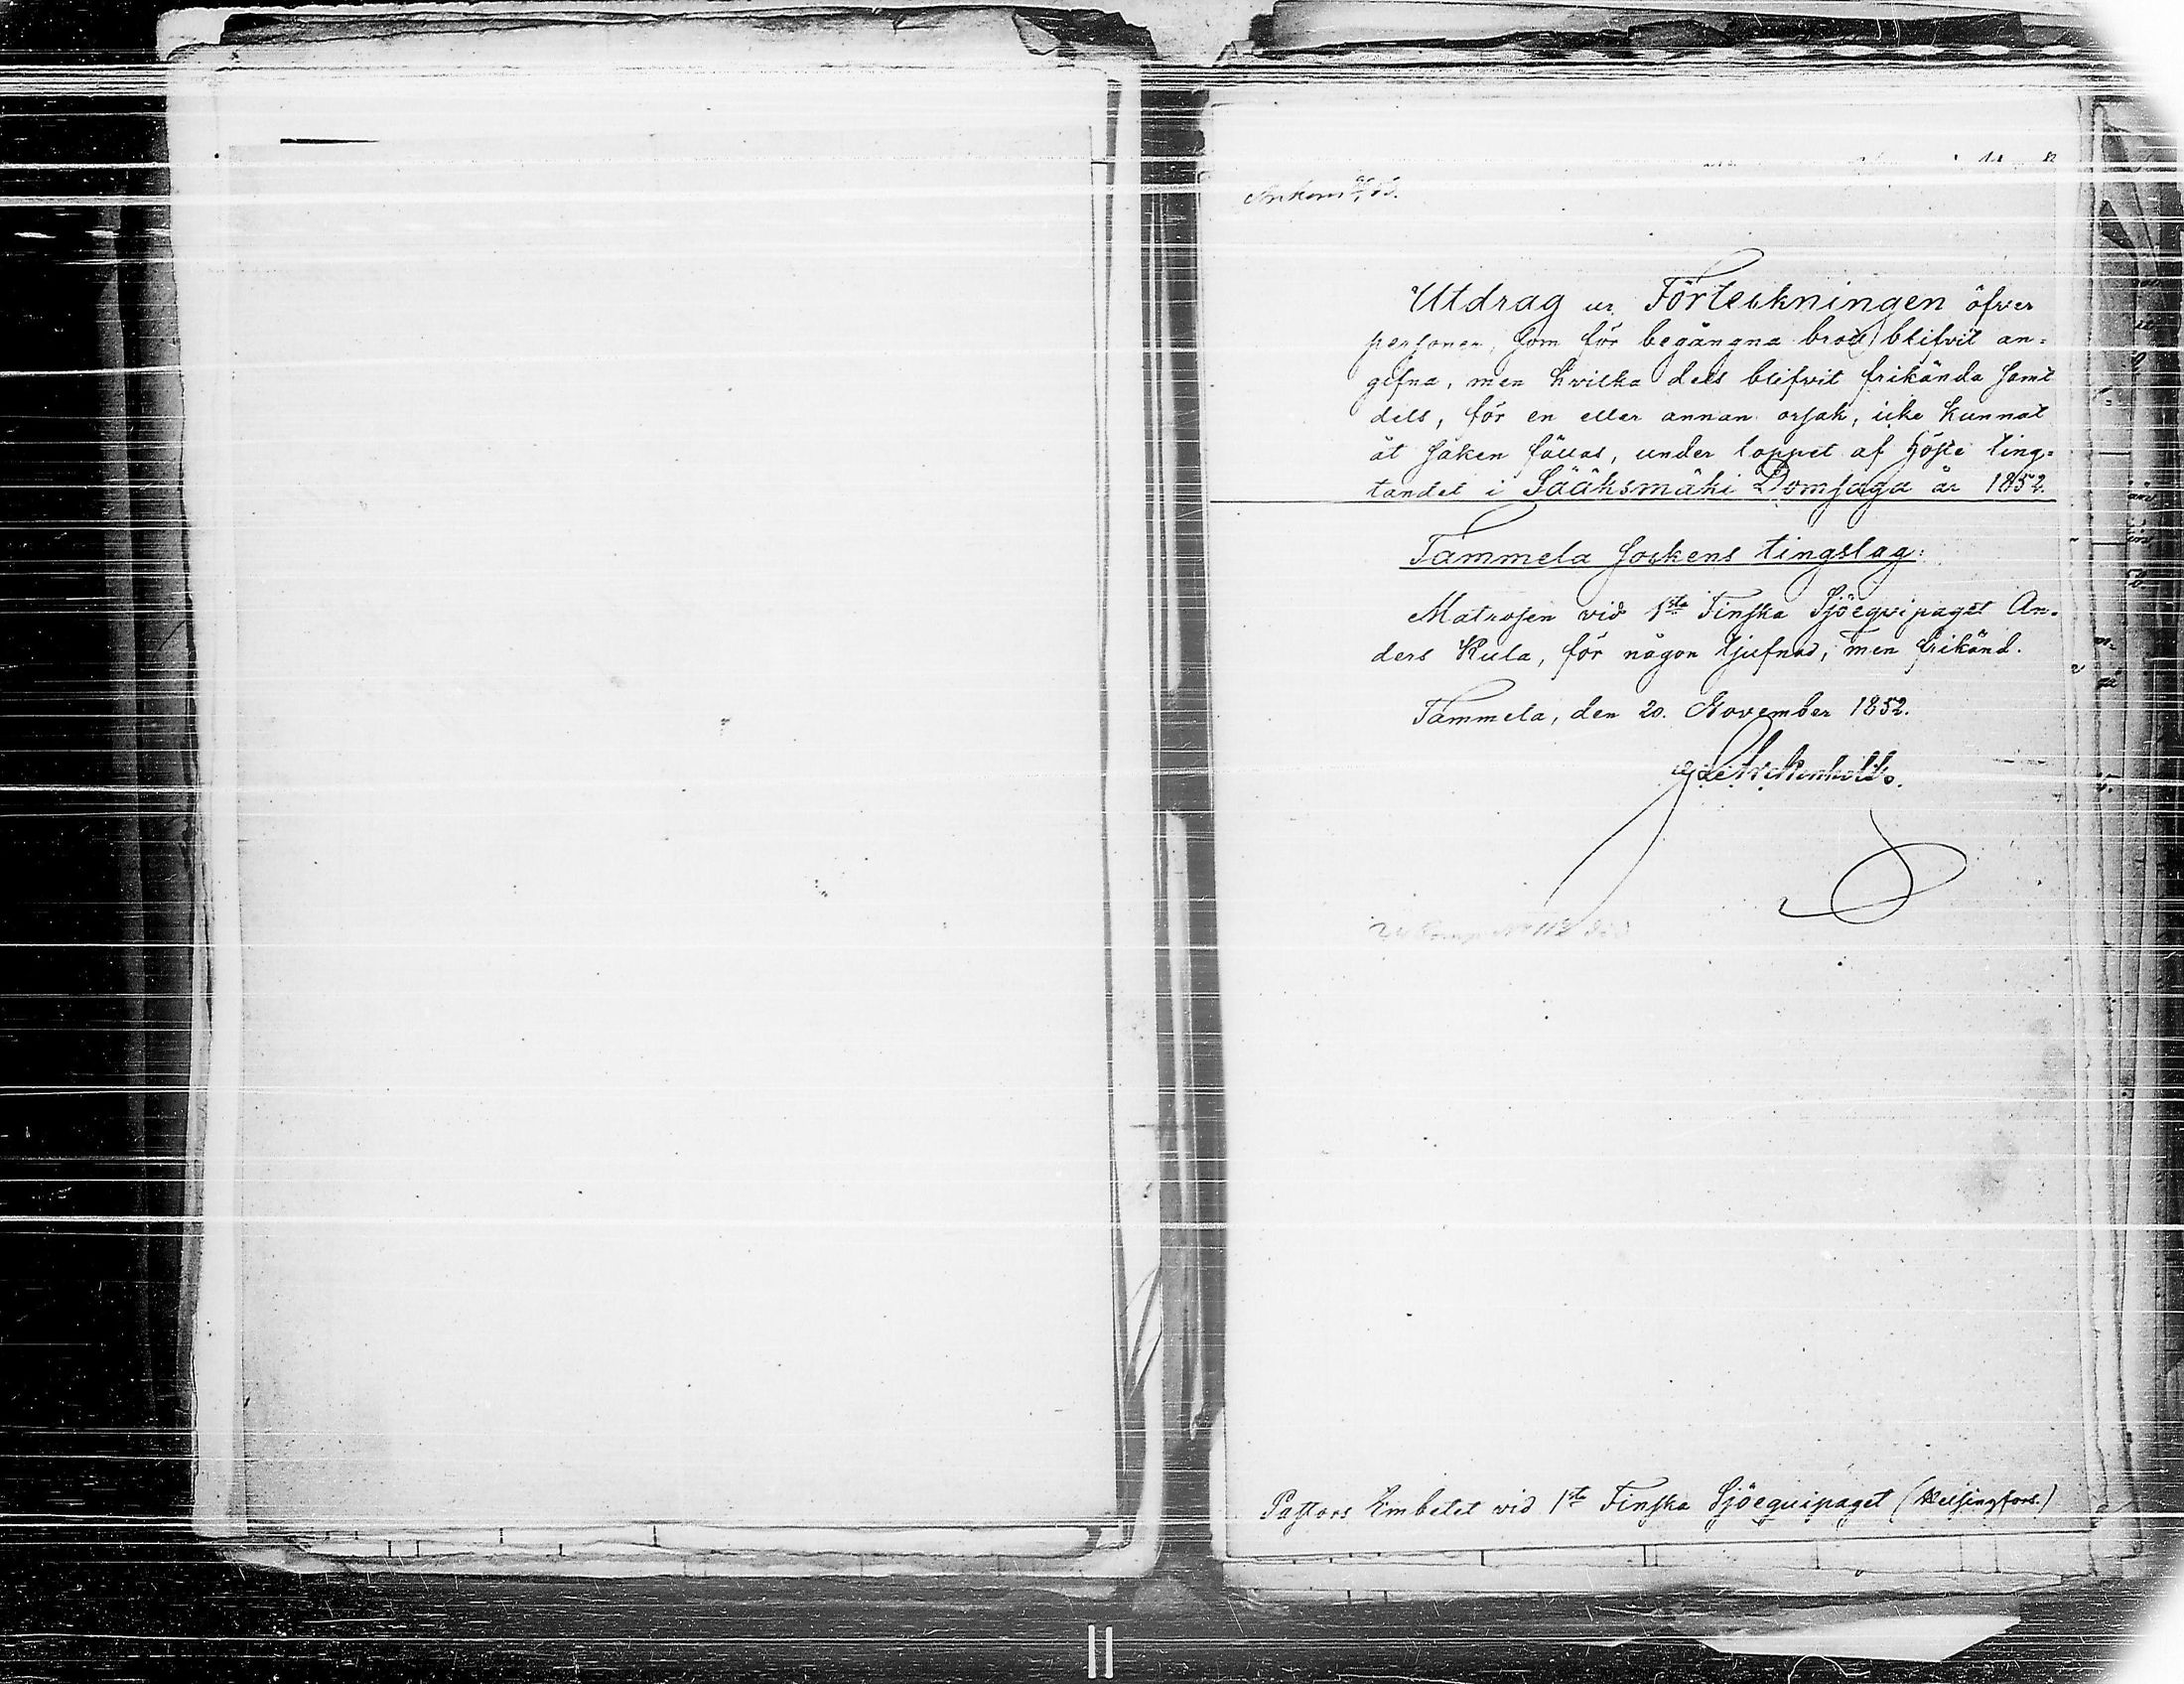 Utdrag ur Förteckningen öfver
personer, som för begångna brott blifvit an=
gifna, men hvilka dels blifvit frikända samt
dels, för en eller annan orsak, icke kunnat
åt saken fällas, under loppet af Höste ting=
tandet i Sääksmäki Domsaga år 1852.
Tammela Sockens tingslag:
Matrosen vid 1sta Finska Sjöeqvipaget An=
ders Kula, för någon tjufnad, men frikänd.
Tammela, den 20. November 1852.
Pastors Embetet vid 1sta Finska Sjöequipaget (Helsingfors.)